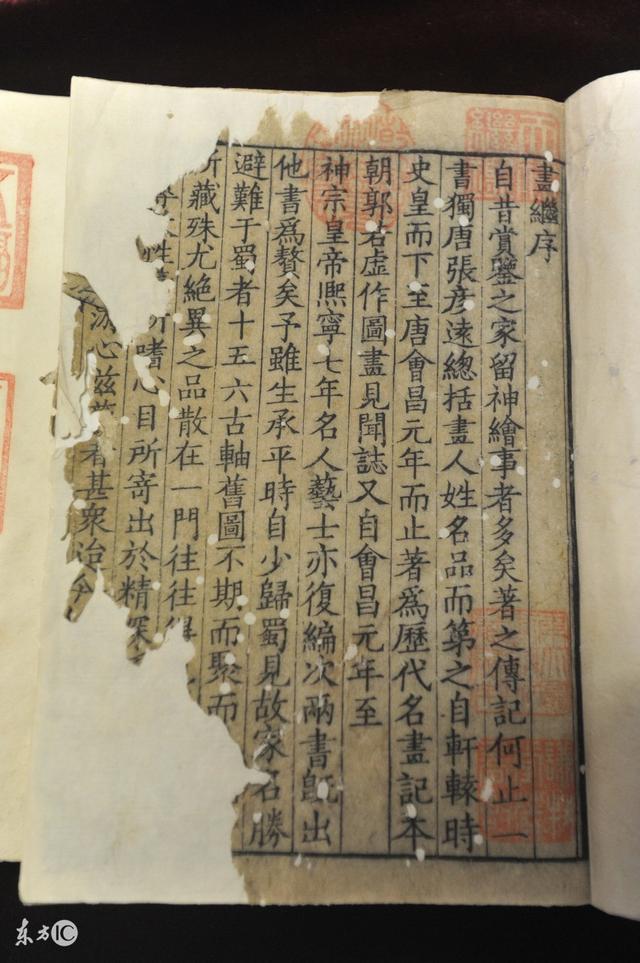 畫繼序
自昔賞鑒之家留神繪事者多矣著之傳記何止一
書獨唐張彥遠總括畫人姓名品而第之自軒轅時
史皇而下至唐會昌元年而止著爲歷代名畫記本
朝郭若虛作圖畫見聞誌又自會昌元年至
神宗皇帝熈寧七年名人藝士亦復編次兩書旣出
他書爲贅矣予雖生承平時自少歸蜀見故家名勝
避難于蜀者十五六古軸舊圖不期而聚而
所藏殊尤絶異之品散在一門往往得
性 所嗜心目所寄出於精深
游心茲 者甚衆迨今
东方IC